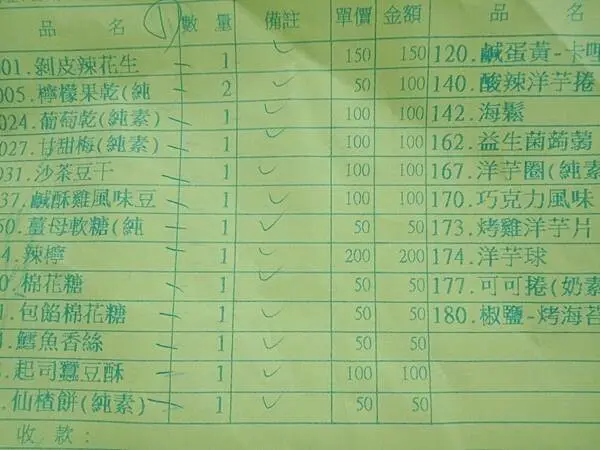 品 名 ① 數 量 備註 單價 金額 品 名
001.剝皮辣花生 1 150 150 120.鹹蛋黃-卡哩
005.檸檬果乾(純 2 50 100 140.酸辣洋芋捲
024.葡萄乾(純素) 1 100 100 142.海鬆
027.甘甜梅(純素) 1 100 100 162.益生菌蒟蒻
031.沙茶豆干 1 100 100 167.洋芋圈(純素
37.鹹酥雞風味豆 1 100 100 170.巧克力風味
50.薑母軟糖(純 1 50 50 173.烤雞洋芋片
4.辣檸 1 200 200 174.洋芋球
0.棉花糖 1 50 50 177.可可捲(奶素
1.包餡棉花糖 1 50 50 180.椒鹽-烤海苔
.鱈魚香絲 1 50 50
.起司蠶豆酥 1 100 100
.仙楂餅(純素) 1 50 50
收 款: